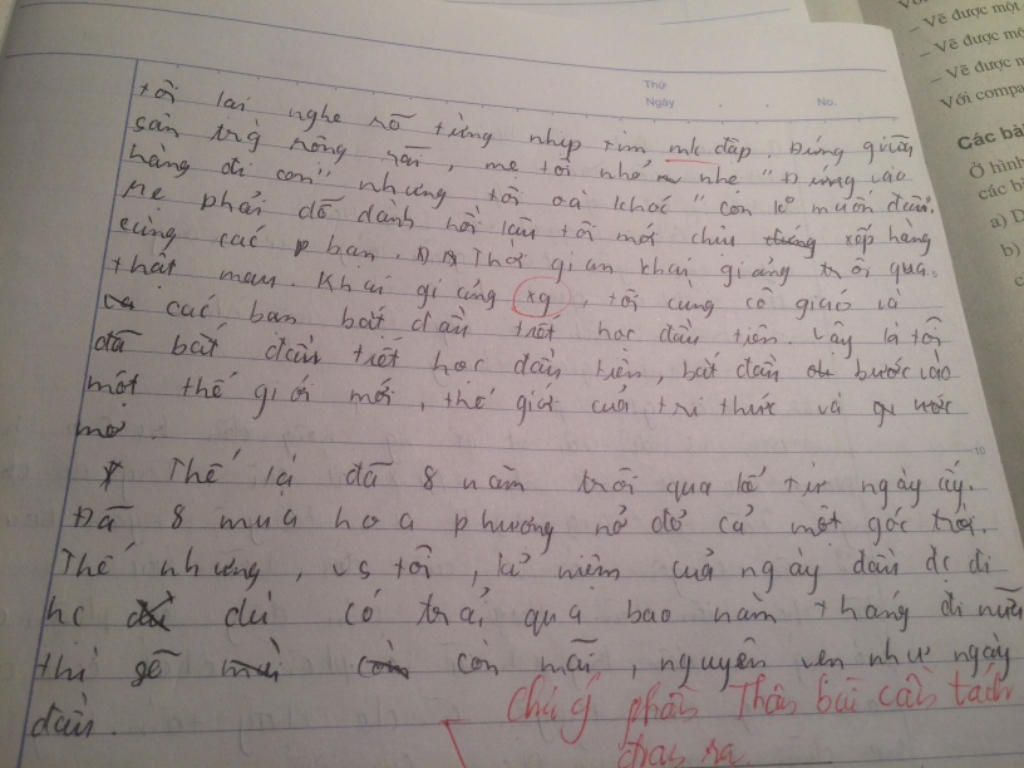 Thứ
Ngày . . No.
tôi lại nghe rõ từng nhịp tim mk đập. Đứng giữa
sân trg rộng rãi, mẹ tôi nhỏ nhẹ "Đứng vào
hàng đi con" nhưng tôi oà khóc "con k muốn đâu.
Mẹ phải dỗ dành hồi lâu tôi mới chịu xếp hàng
cùng các bạn. Thời gian khai giảng trôi qua
thật mau. Khai giảng xg, tôi cùng cô giáo và
các bạn bắt đầu tiết học đầu tiên. Vậy là tôi
đã bắt đầu tiết học đầu tiên, bắt đầu bước vào
một thế giới mới, thế giới của tri thức và ước
mơ.
10
Thế là đã 8 năm trôi qua kể từ ngày ấy.
Đã 8 mùa hoa phượng nở đỏ cả một góc trời.
Thế nhưng, vs tôi, kỉ niệm của ngày đầu đc đi
hc dù có trải qua bao năm tháng đi nữa
thì sẽ còn mãi, nguyên vẹn như ngày
đầu.
Chú ý phần Thân bài cần tách
đoạn ra.
– Vẽ được một
– Vẽ được mộ
– Vẽ được m
Với compa
Các bà
Ở hình
các bà
a) D
b)